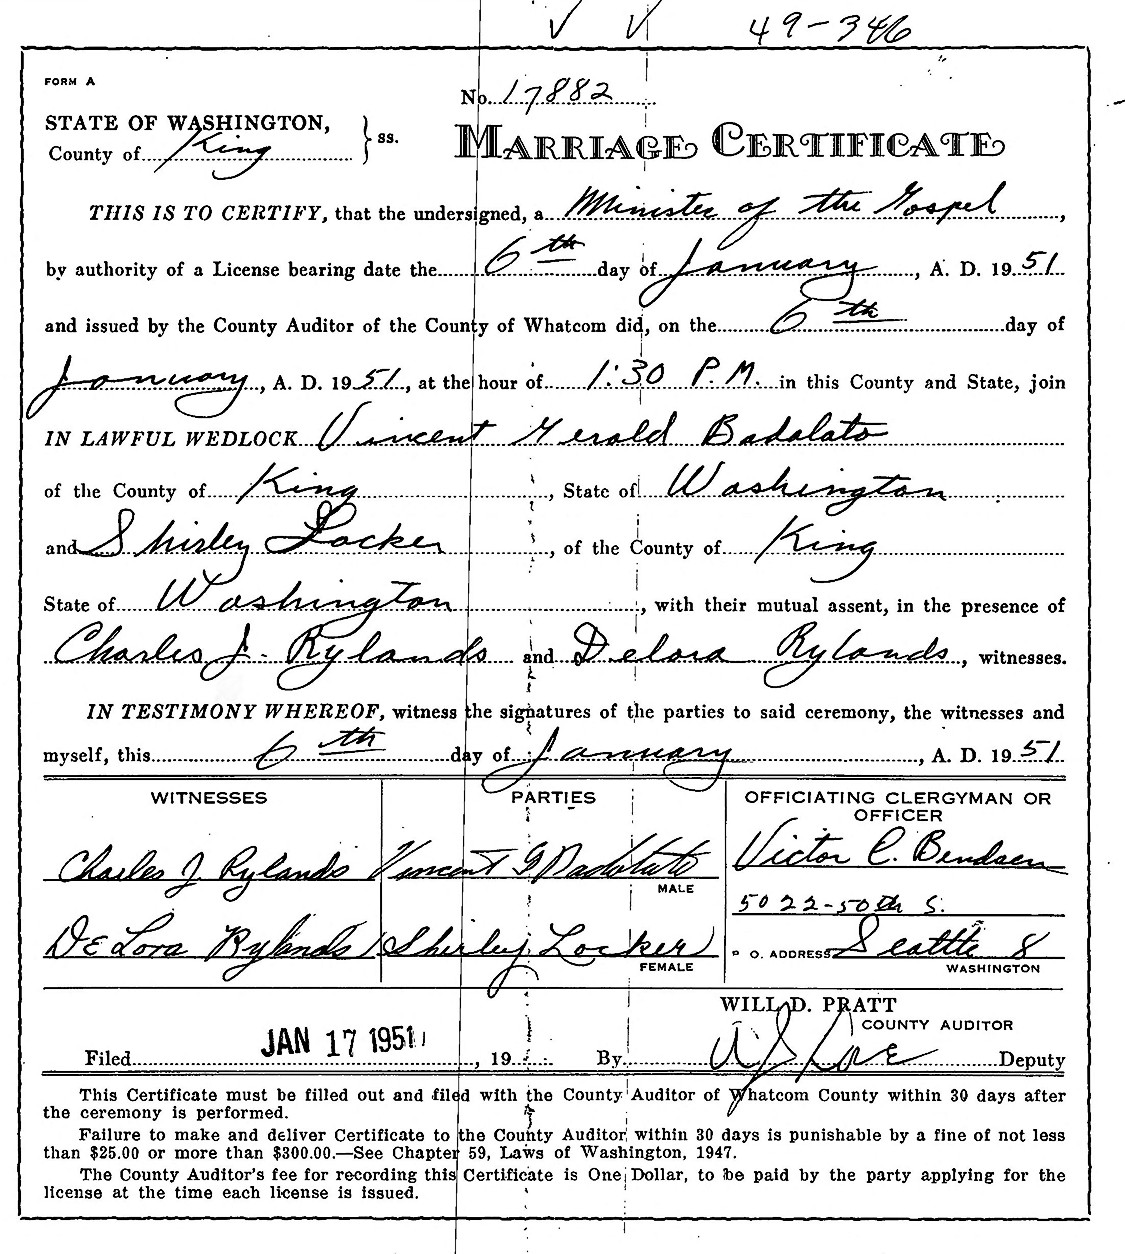 49-346
FORM A
No. 17882
STATE OF WASHINGTON, } ss.
County of King
MARRIAGE CERTIFICATE
THIS IS TO CERTIFY, that the undersigned, a Minister of the Gospel,
by authority of a License bearing date the 6th day of January, A. D. 1951
and issued by the County Auditor of the County of Whatcom did, on the 6th day of
January, A. D. 1951, at the hour of 1:30 P.M. in this County and State, join
IN LAWFUL WEDLOCK Vincent Gerald Badalato
of the County of King, State of Washington
and Shirley Locker, of the County of King
State of Washington, with their mutual assent, in the presence of
Charles J. Rylands and Delora Rylands, witnesses.
IN TESTIMONY WHEREOF, witness the signatures of the parties to said ceremony, the witnesses and
myself, this 6th day of January, A. D. 1951
WITNESSES
Charles J Rylands
DeLora Rylands
PARTIES
Vincent G Badalato
MALE
Shirley Locker
FEMALE
OFFICIATING CLERGYMAN OR
OFFICER
Victor C. Bendsen
5022-50th S.
P. O. ADDRESS Seattle 8
WASHINGTON
WILL D. PRATT
COUNTY AUDITOR
Filed JAN 17 1951, 19 By Deputy
This Certificate must be filled out and filed with the County Auditor of Whatcom County within 30 days after
the ceremony is performed.
Failure to make and deliver Certificate to the County Auditor within 30 days is punishable by a fine of not less
than $25.00 or more than $300.00.—See Chapter 59, Laws of Washington, 1947.
The County Auditor's fee for recording this Certificate is One Dollar, to be paid by the party applying for the
license at the time each license is issued.